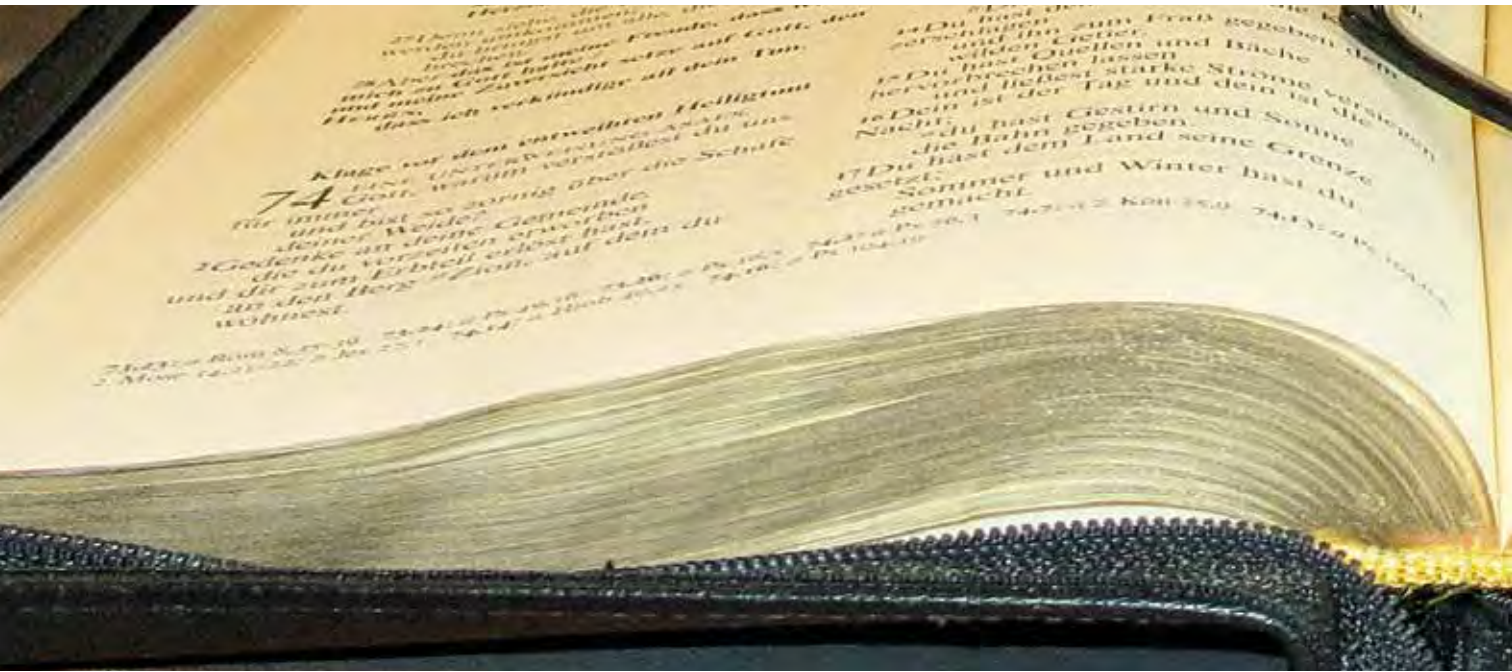 27 Denn siehe, die
werden umkommen; alle, die
du bringst um alle, die
28 Aber das ist meine Freude, dass ich
mich zu Gott halte
und meine Zuversicht setze auf Gott, den
HERRN,
dass ich verkündige all dein Tun.
Klage vor dem entweihten Heiligtum
74 EINE UNTERWEISUNG ASAFS.
Gott, warum verstößest du uns
für immer
und bist so zornig über die Schafe
deiner Weide?
2 Gedenke an deine Gemeinde,
die du vorzeiten erworben
und dir zum Erbteil erlöst hast,
an den Berg Zion, auf dem du
wohnest.
14 Du hast dem
zerschlagen
und ihn zum Fraß gegeben dem
wilden Getier.
15 Du hast Quellen und Bäche
hervorbrechen lassen
und ließest starke Ströme versiegen
16 Dein ist der Tag und dein ist die
Nacht;
du hast Gestirn und Sonne
die Bahn gegeben.
17 Du hast dem Land seine Grenze
gesetzt;
Sommer und Winter hast du
gemacht.
73,23: a Röm 8,35-39
2. Mose 14,21-22; a Jes 27,1 74,14: a Hiob 40,25 74,16: a Ps 104,19